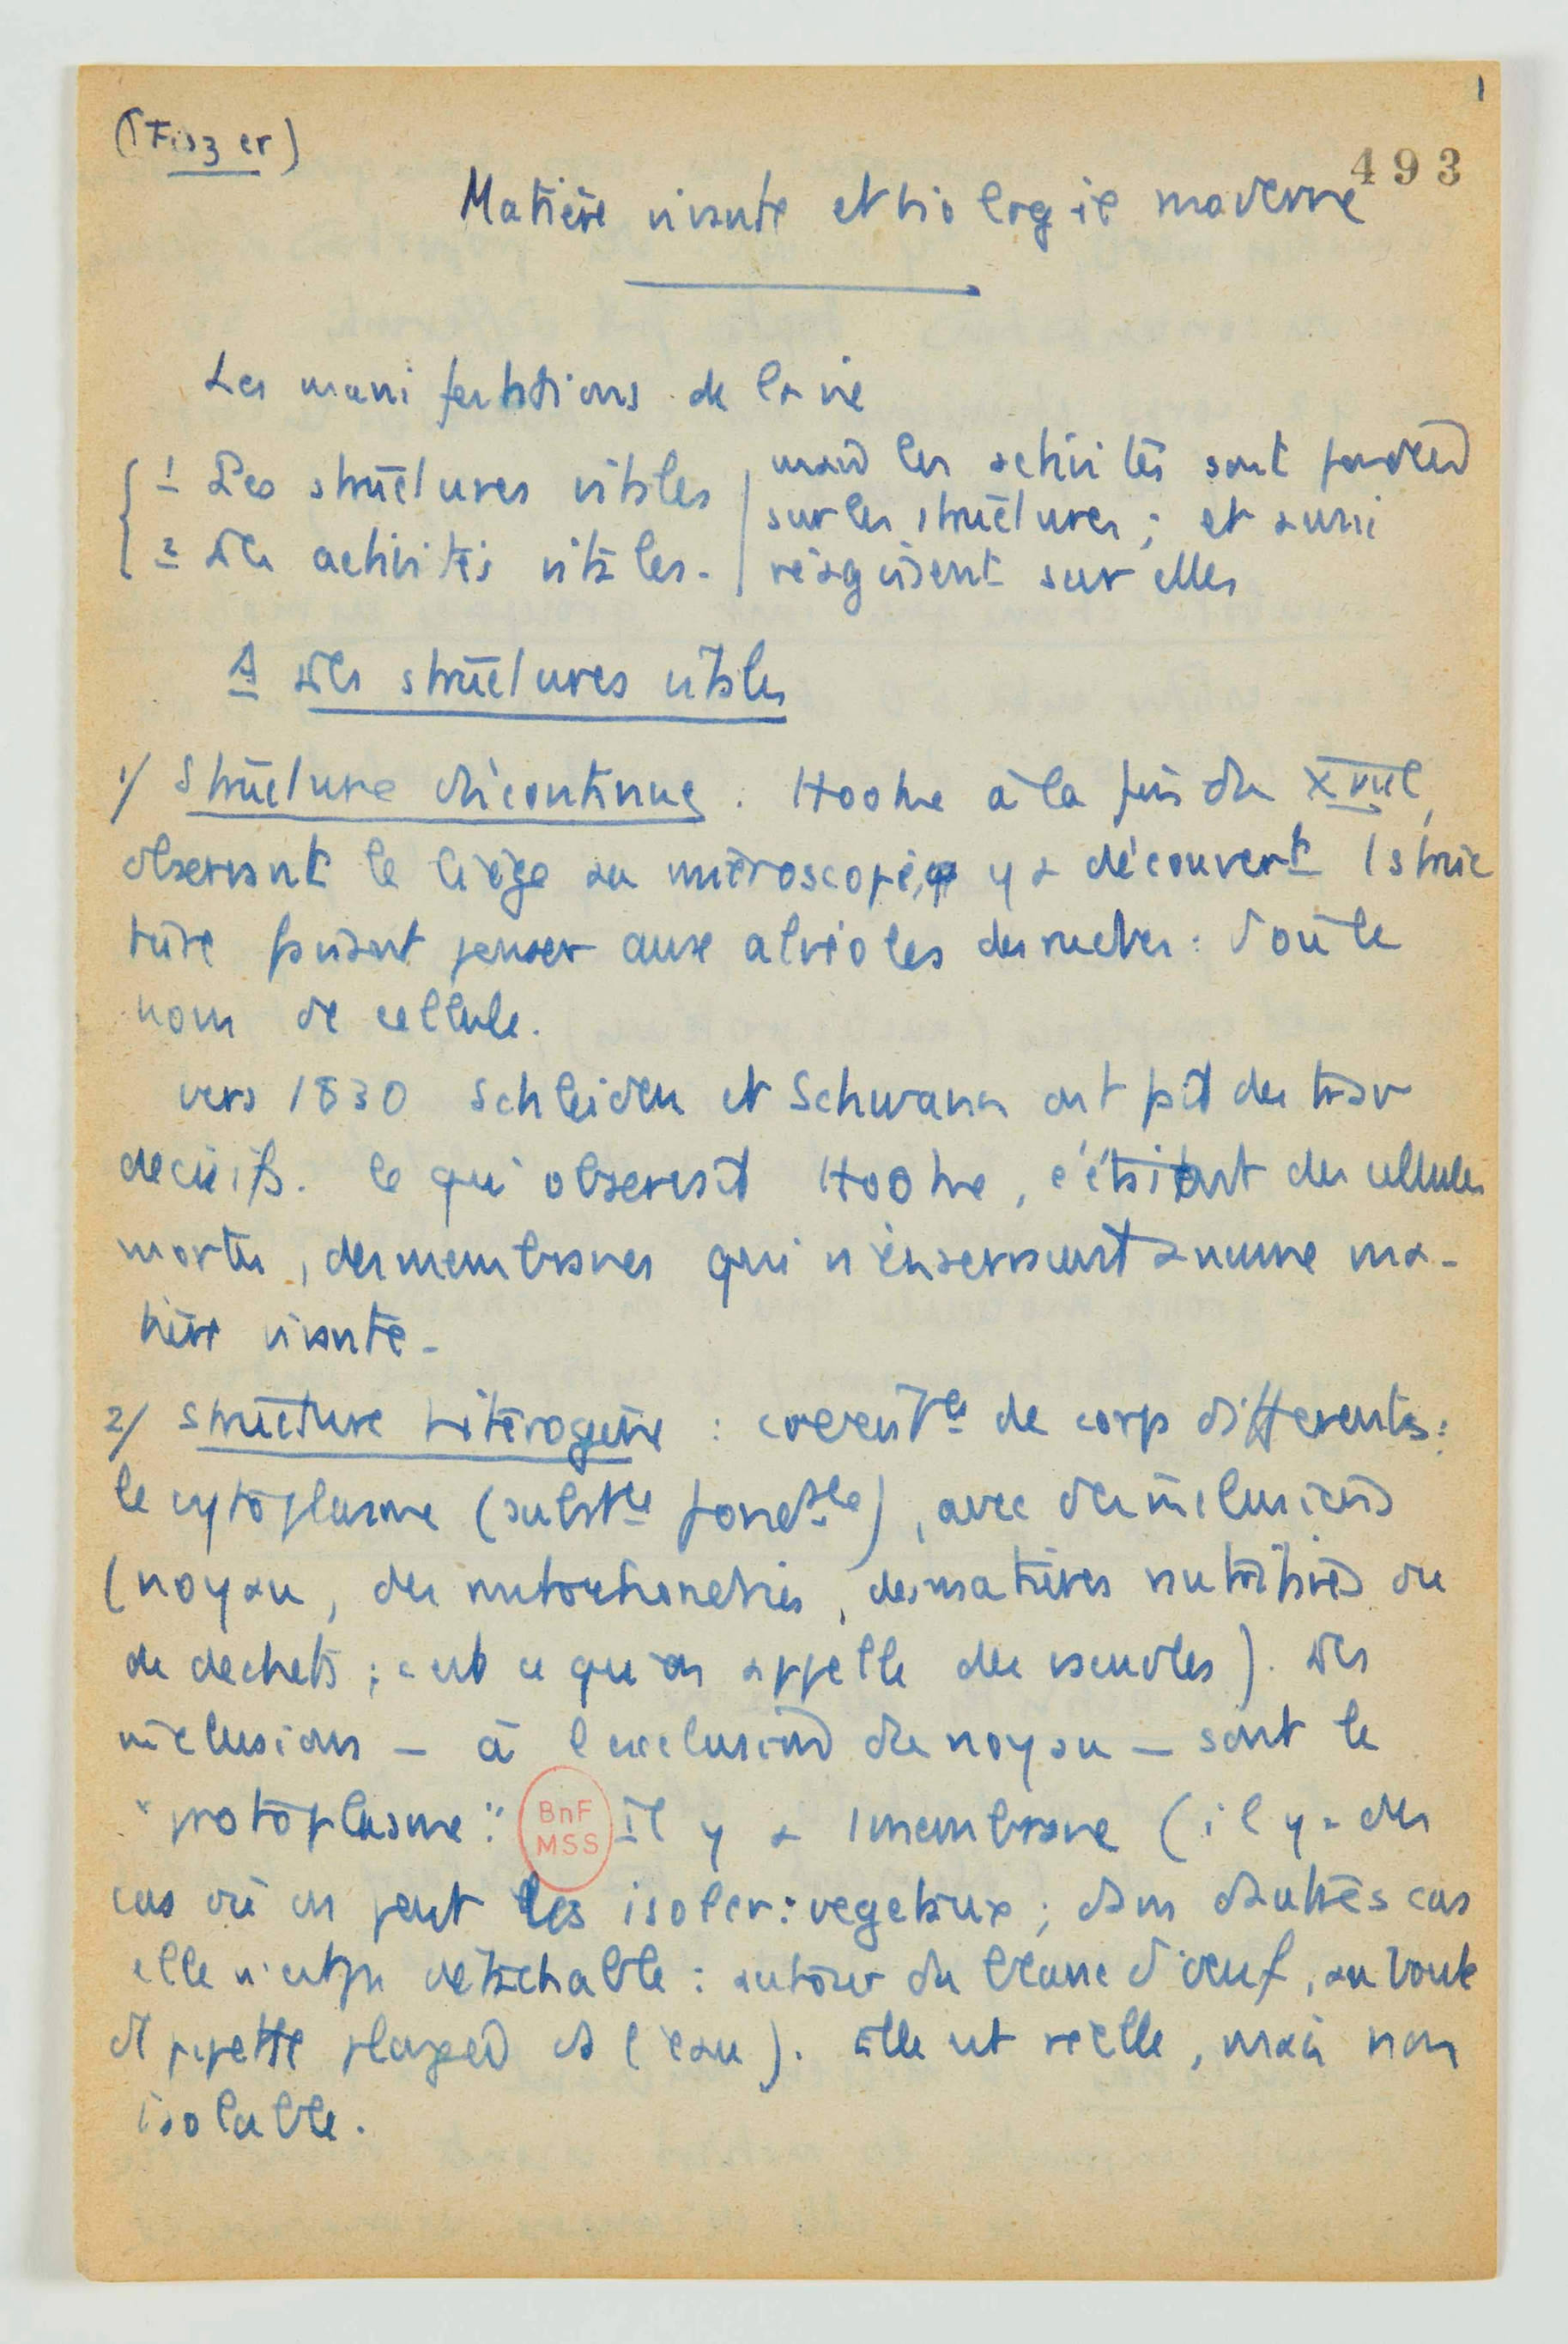 1
(Fiszer)
493
Matière vivante et biologie moderne
Les manifestations de la vie
1 Les structures vitales
2 Les activités vitales.
mais les activités sont fondées
sur les structures ; et aussi
réagissent sur elles
A Les structures vitales
1/ Structure discontinue. Hooke à la fin du XVIIe,
observant le liège au microscope, y a découvert 1 struc
ture faisant penser aux alvéoles des ruches : d'où le
nom de cellule.
vers 1830 Schleiden et Schwann ont fait des trav
decisifs. Ce qu'observait Hooke, c'étaient des cellules
mortes, des membranes qui n'enserraient aucune ma-
tière vivante.
2/ Structure hétérogène : coexistce de corps differents :
le cytoplasme (substce fondtale), avec des inclusions
(noyau, des mitochondries, des matières nutritives ou
de dechets ; c'est ce qu'on appelle des vacuoles). Les
inclusions — à l'exclusion du noyau — sont le
"protoplasme". Il y a 1 membrane (il y a des
BnF
MSS
cas où on peut les isoler : vegetaux ; dans d'autres cas
elle n'est pas détachable : autour du blanc d'oeuf, au bout
d'1 pipette plongée ds l'eau). Elle est réelle, mais non
isolable.